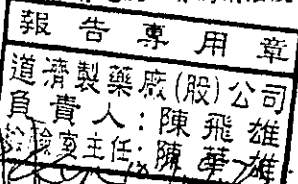 報告專用章
道濟製藥廠(股)公司
負責人:陳飛雄
檢驗室主任:陳華雄